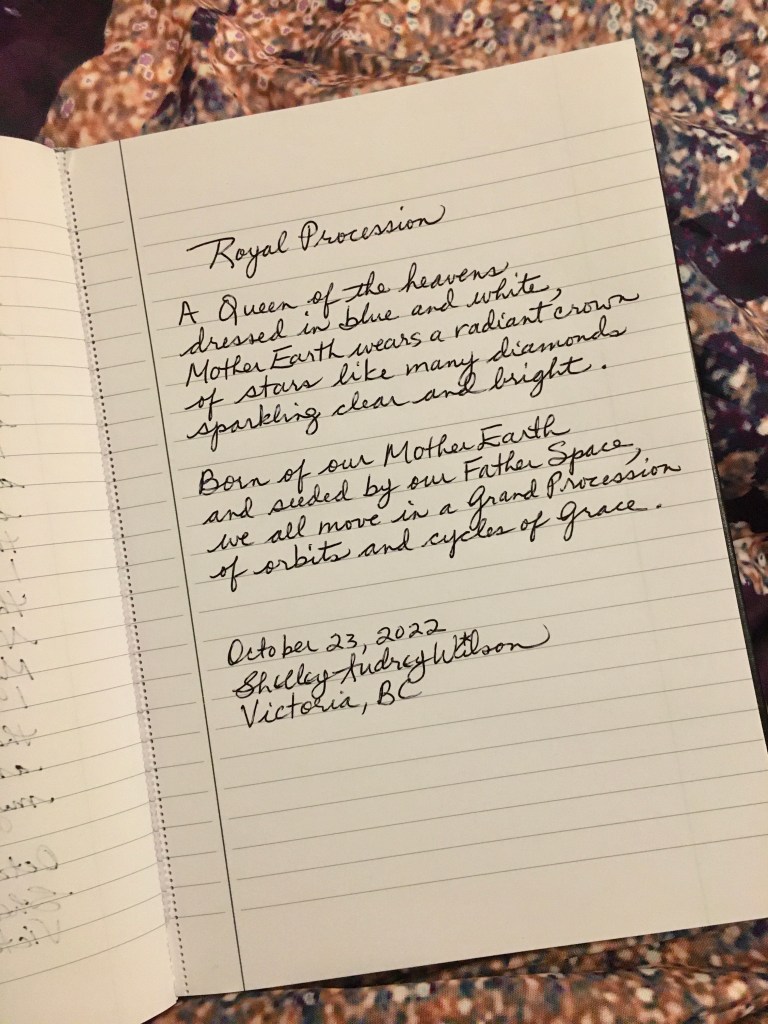 Royal Procession
A Queen of the heavens
dressed in blue and white,
Mother Earth wears a radiant crown
of stars like many diamonds
sparkling clear and bright.
Born of our Mother Earth
and seeded by our Father Space,
we all move in a Grand Procession
of orbits and cycles of Grace.
October 23, 2022
Shelley Audrey Wilson
Victoria, BC